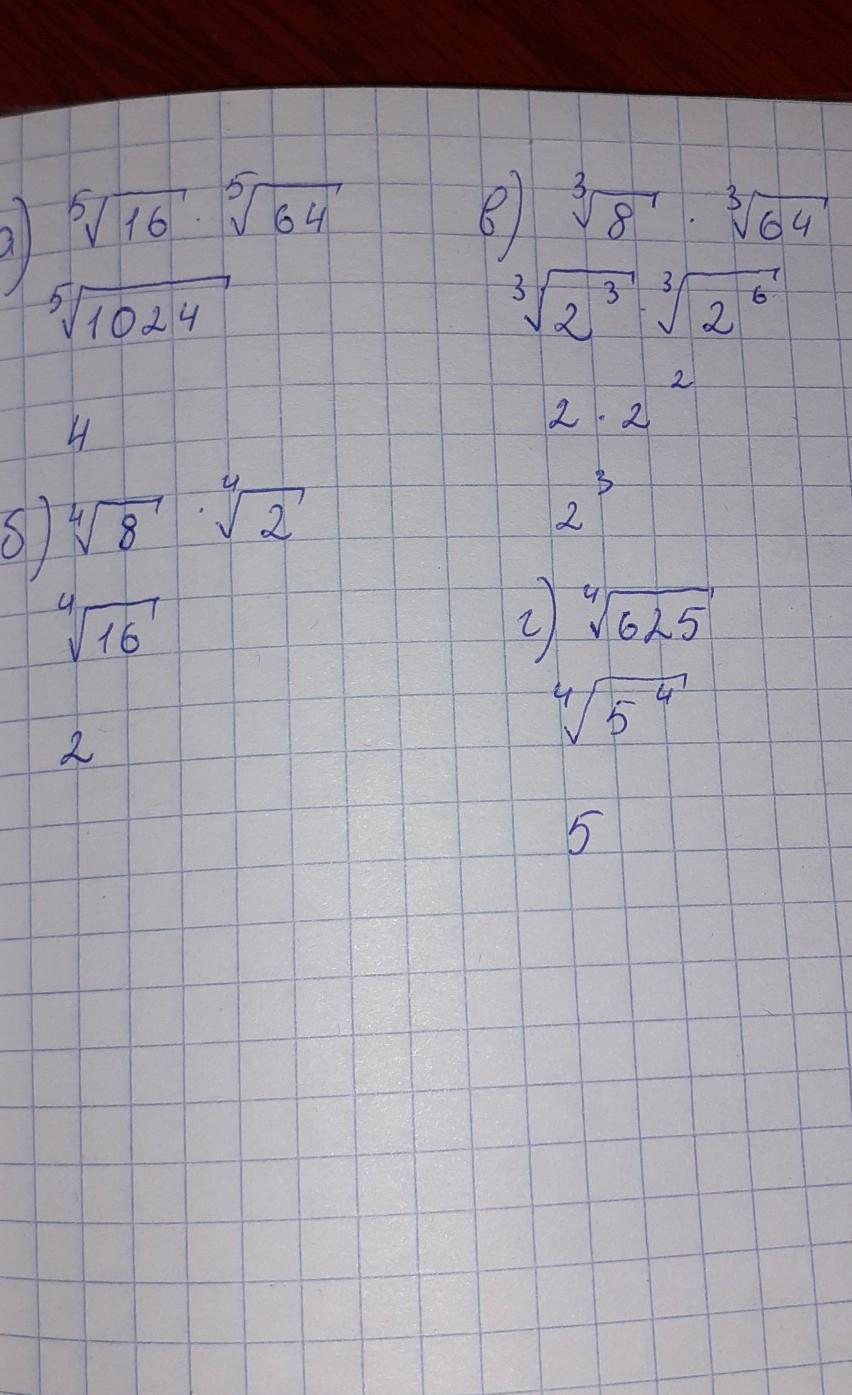 а) ⁵√16 · ⁵√64
⁵√1024
4
б) ⁴√8 · ⁴√2
⁴√16
2
в) ³√8 · ³√64
³√2³ · ³√2⁶
2 · 2²
2³
г) ⁴√625
⁴√5⁴
5